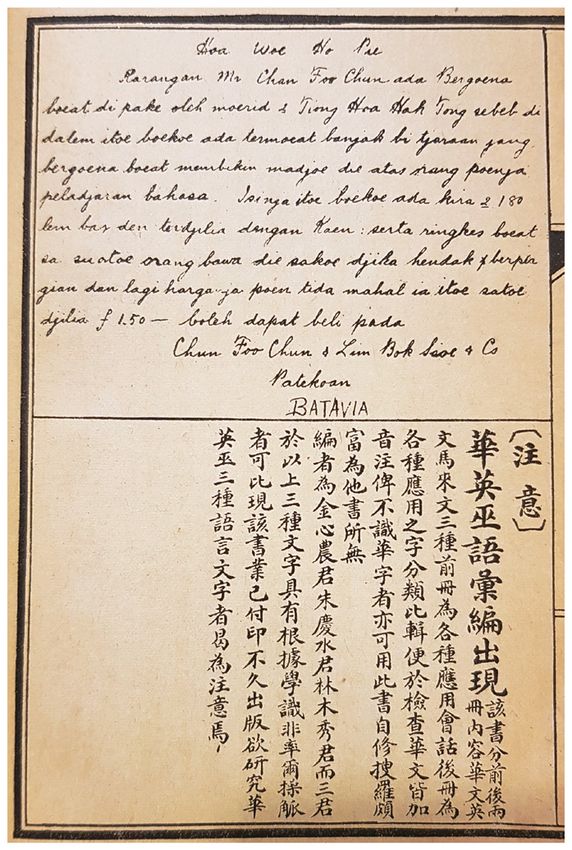 Hoa Woe Ho Pie
Karangan Mr Chan Foo Chun ada Bergoena
boeat di pake oleh moerid 2 Tiong Hoa Hak Tong sebeb di
dalem itoe boekoe ada termoeat banjak bi tjaraan jang
bergoena boeat membikin madjoe die atas orang poenja
peladjaran bahasa. Isinja itoe boekoe ada kira 2 180
lem bar den terdjilia dengan Kaen: serta ringkes boeat
sa suatoe orang bawa die sakoe djika hendak berper
gian dan lagi harga-ja poen tida mahal ia itoe satoe
djilia f 1.50 — boleh dapat beli pada
Chun Foo Chun & Lim Bok Sioe & Co
Patekoan
BATAVIA
〔注意〕
華英巫語彙編出現 該書分前後兩
冊內容華文英
文馬來文三種前冊為各種應用會話後冊為
各種應用之字分類比輯便於檢查華文皆加
音注俾不識華字者亦可用此書自修搜羅頗
富為他書所無
編者為金心農君朱慶水君林木秀君而三君
於以上三種文字具有根據學識非率爾操觚
者可比現該書業已付印不久出版欲研究華
英巫三種語言文字者曷為注意焉